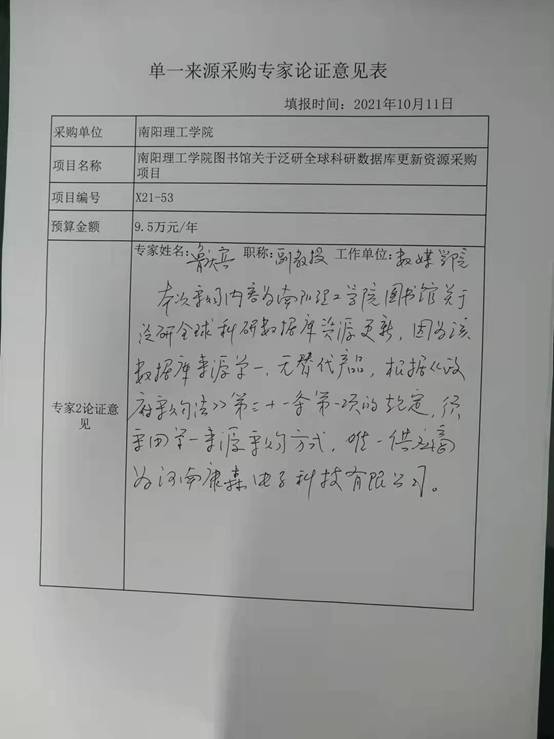 单一来源采购专家论证意见表
填报时间：2021年10月11日
采购单位 南阳理工学院
项目名称 南阳理工学院图书馆关于泛研全球科研数据库更新资源采购
项目
项目编号 X21-53
预算金额 9.5万元/年
专家姓名： 职称：副教授 工作单位：数媒学院
本次采购内容为南阳理工学院图书馆关于
泛研全球科研数据库资源更新，因为该
数据库来源单一，无替代产品，根据《政
专家2论证意见
府采购法》第三十一条第一项的规定，须
采用单一来源采购方式，唯一供应商
为河南康森电子科技有限公司。